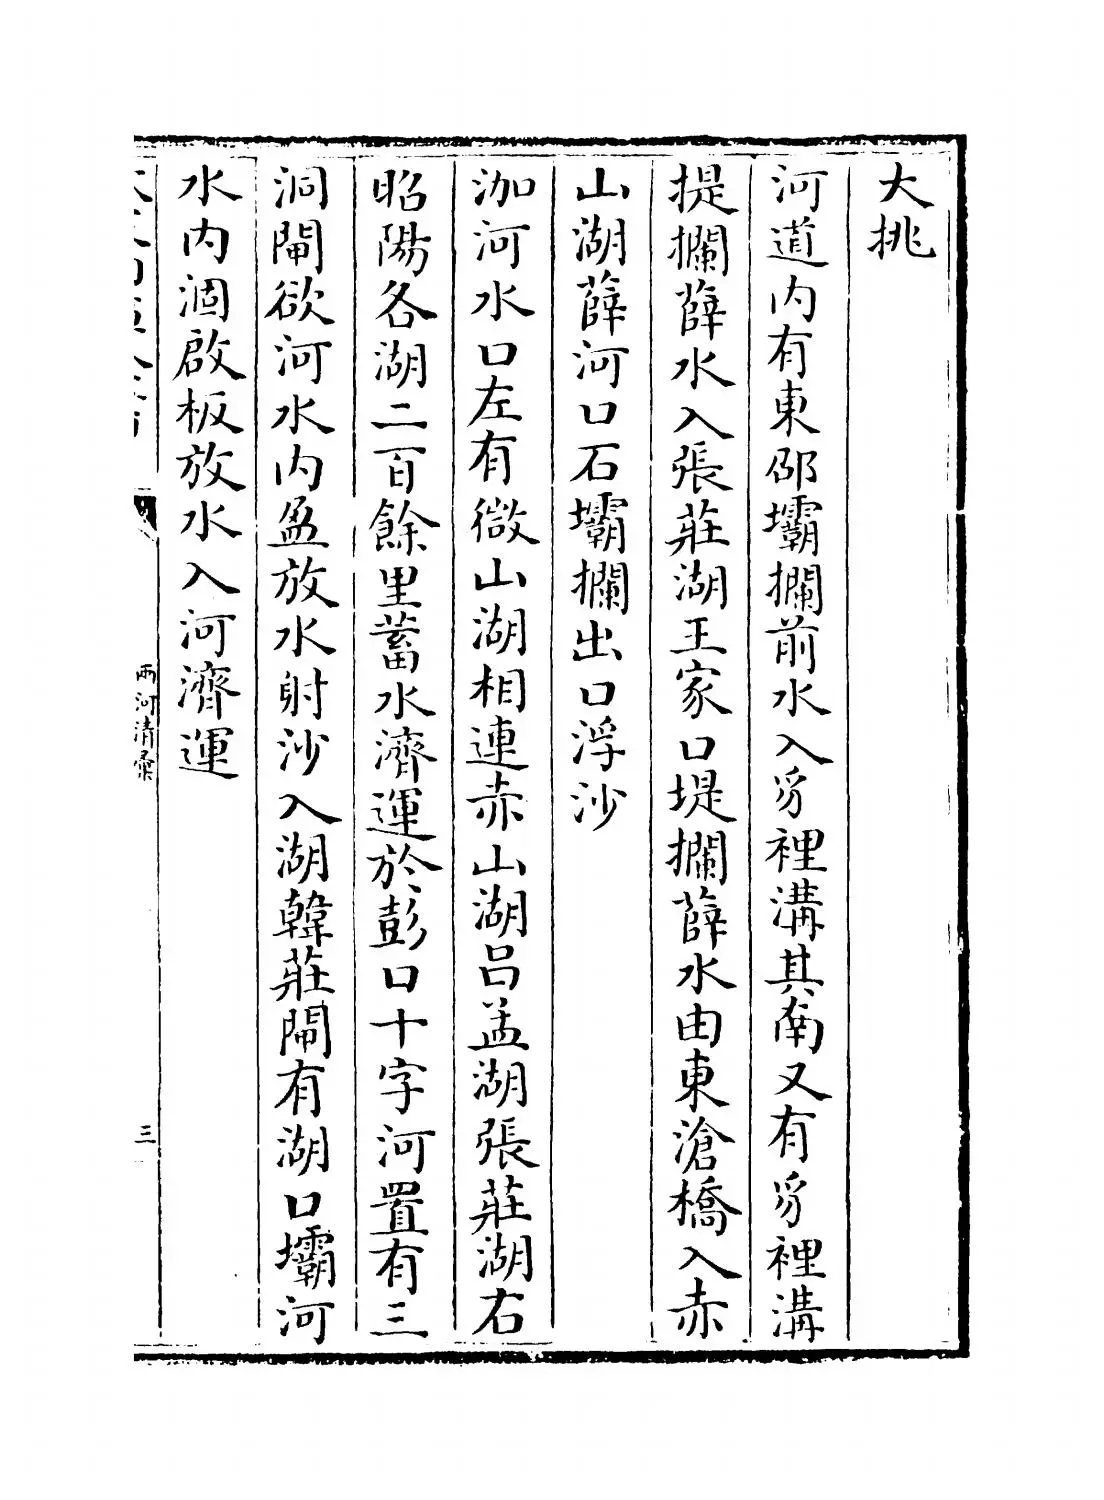 大挑
河道内有東邵壩攔前水入豸裡溝其南又有豸裡溝
提攔薛水入張莊湖王家口堤攔薛水由東滄橋入赤
山湖薛河口石壩攔出口浮沙
泇河水口左有微山湖相連赤山湖吕孟湖張莊湖右
昭陽各湖二百餘里蓄水濟運於彭口十字河置有三
洞閘欲河水内盈放水射沙入湖韓莊閘有湖口壩河
水内涸啟板放水入河濟運
兩河清彙
三